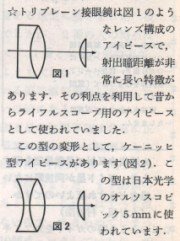 ☆トリプレーン接眼鏡は図1のよう
なレンズ構成の
アイピースで，
射出瞳距離が非
常に長い特徴が
図1
あります．その利点を利用して昔か
らライフルスコープ用のアイピース
として使われていました．
この型の変形として，ケーニッヒ
型アイピースがあります（図2）．こ
の型は日本光学
のオルソスコピ
ック5㎜に使
われています．
図2